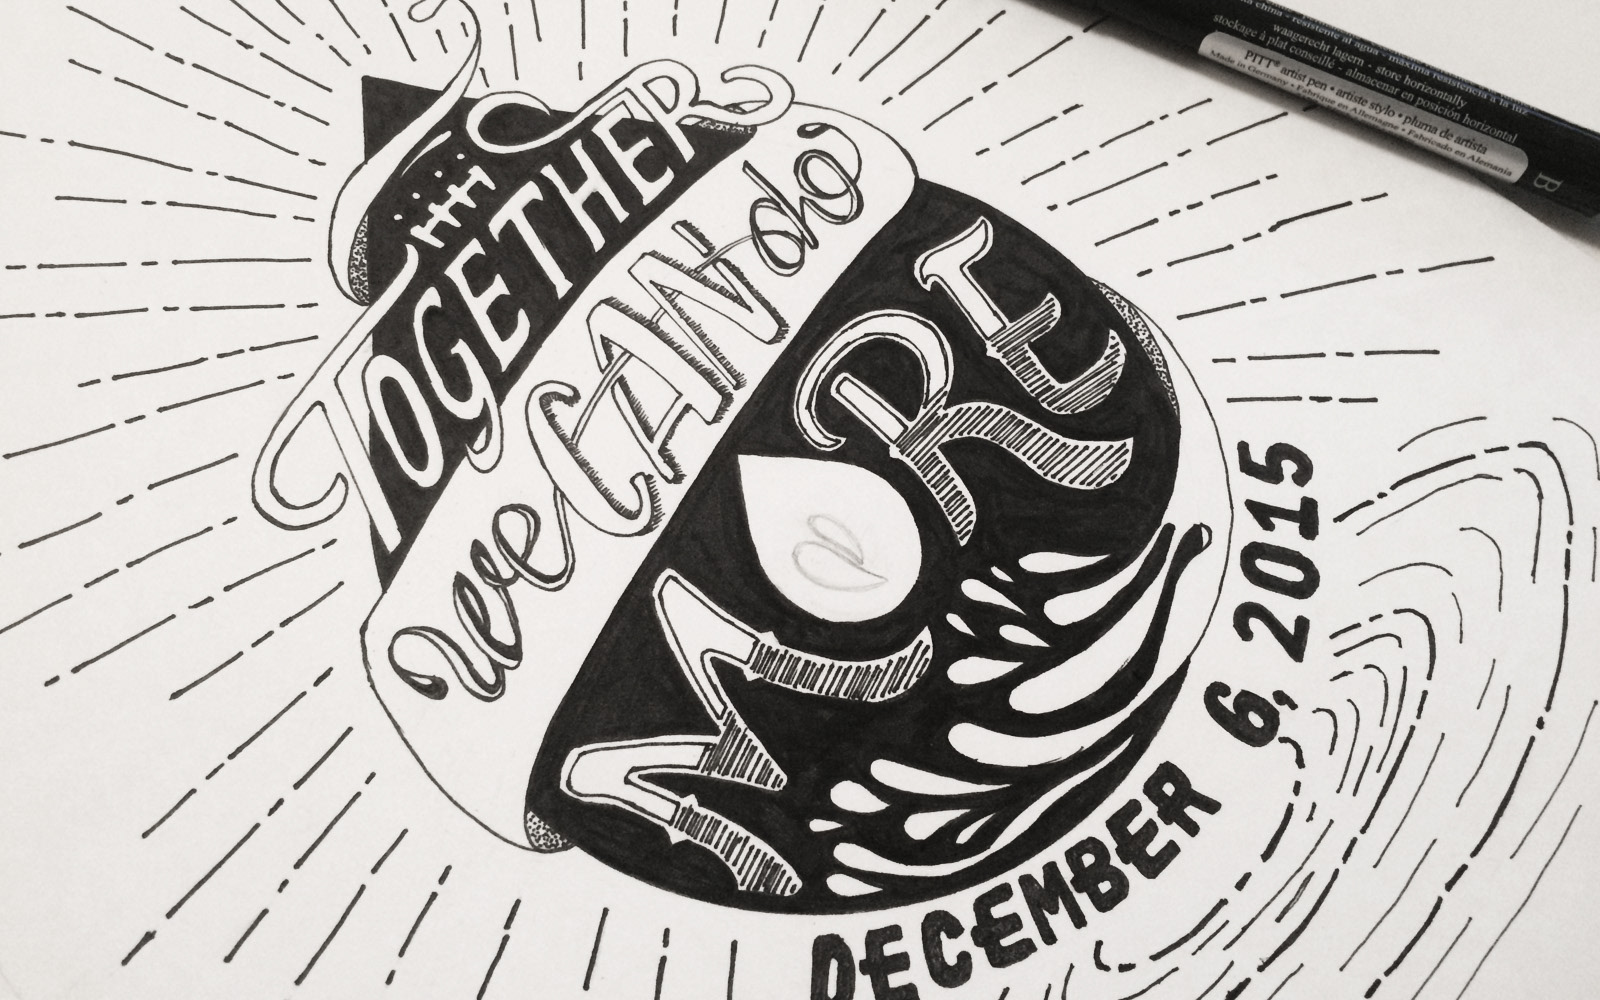 TOGETHER
we CAN do
MORE
DECEMBER 6, 2015
china - résistente al agua - máxima resistencia a la luz
waagerecht lagern - store horizontally
stockage à plat conseillé - almacenar en posición horizontal
PITT® artist pen • artiste stylo • pluma de artista
Made in Germany • Fabriqué en Allemagne • Fabricado en Alemania
B